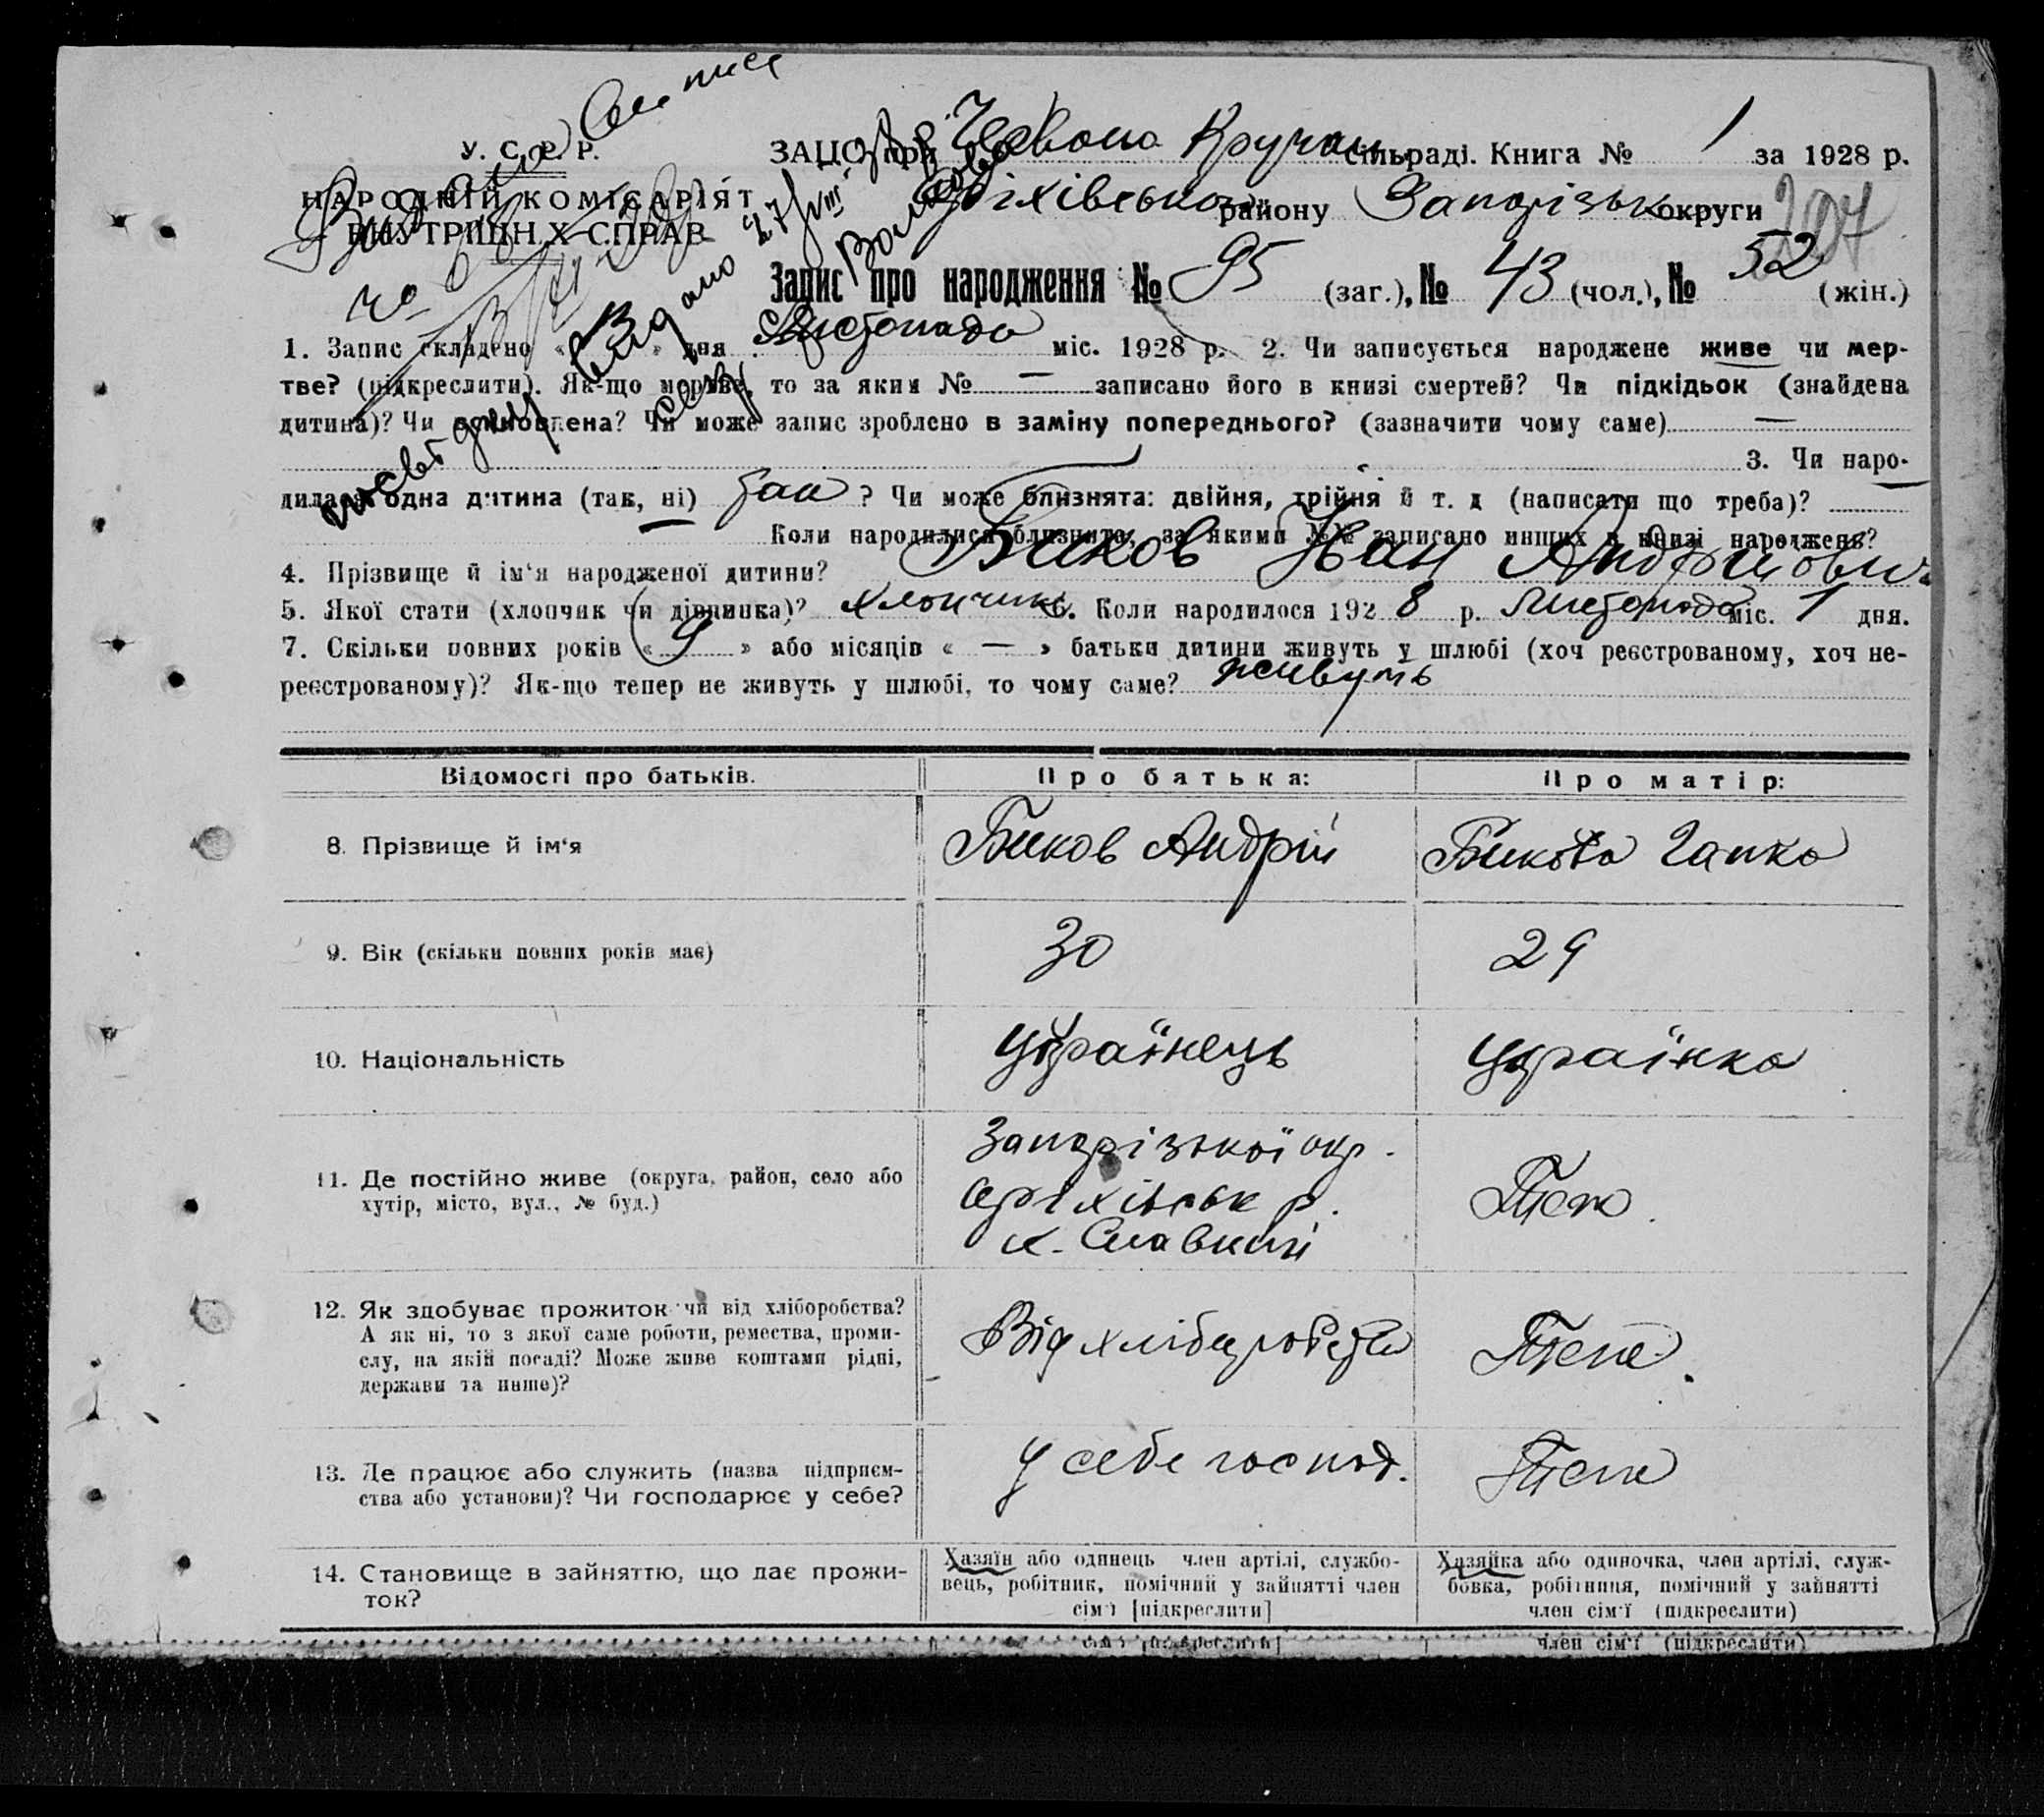 У. С. Р. Р.
НАРОДНІЙ КОМІСАРІЯТ
ВНУТРІШН.Х СПРАВ
ЗАЦС при Червоно Кручан. сільраді. Книга № 1 за 1928 р.
Оріхівськог району Запорізьк округи
207
Запис про народження № 95 (заг.), № 43 (чол.), № 52 (жін.)
Видано 27/VIII
1. Запис складено « » дня Листопада міс. 1928 р. 2. Чи записується народжене живе чи мер-
тве? (підкреслити). Як-що мертве, то за яким № — записано його в книзі смертей? Чи підкідьок (знайдена
дитина)? Чи Чи може запис зроблено в заміну попереднього? (зазначити чому саме) —
3. Чи наро-
дилась одна дитина (так, ні) так ? Чи може близнята: двійня, трійня й т. д (написати що треба)?
Коли народилися близнята, за якими №№ записано инших в книзі народжень?
4. Прізвище й ім'я народженої дитини? Биков Іван Андрійович
5. Якої стати (хлопчик чи дівчинка)? хлопчик 6. Коли народилося 1928 р. Листопада міс. 1 дня.
7. Скільки повних років « 9 » або місяців « — » батьки дитини живуть у шлюбі (хоч реєстрованому, хоч не-
реєстрованому)? Як-що тепер не живуть у шлюбі, то чому саме? живуть
Відомості про батьків. Про батька: Про матір:
8. Прізвище й ім'я Биков Андрій Бикова Гапка
9. Вік (скільки повних років має) 30 29
10. Національність Українець Українка
11. Де постійно живе (округа, район, село або
хутір, місто, вул., № буд.)
Запорізької окр.
Оріхівськ р.
х.
Теж
12. Як здобуває прожиток чи від хліборобства?
А як ні, то з якої саме роботи, ремества, проми-
слу, на якій посаді? Може живе коштами рідні,
держави та инше)?
Від хліборобства
Теж.
13. Де працює або служить (назва підприєм-
ства або установи)? Чи господарює у себе?
У себе господ.
Теж
14. Становище в зайняттю, що дає прожи-
ток?
Хазяїн або одинець член артілі, службо-
вець, робітник, помічний у зайнятті член
сім'ї [підкреслити]
Хазяйка або одиночка, член артілі, служ-
бовка, робітниця, помічний у зайнятті
член сім'ї (підкреслити)
сім'ї [підкреслити] член сім'ї (підкреслити)